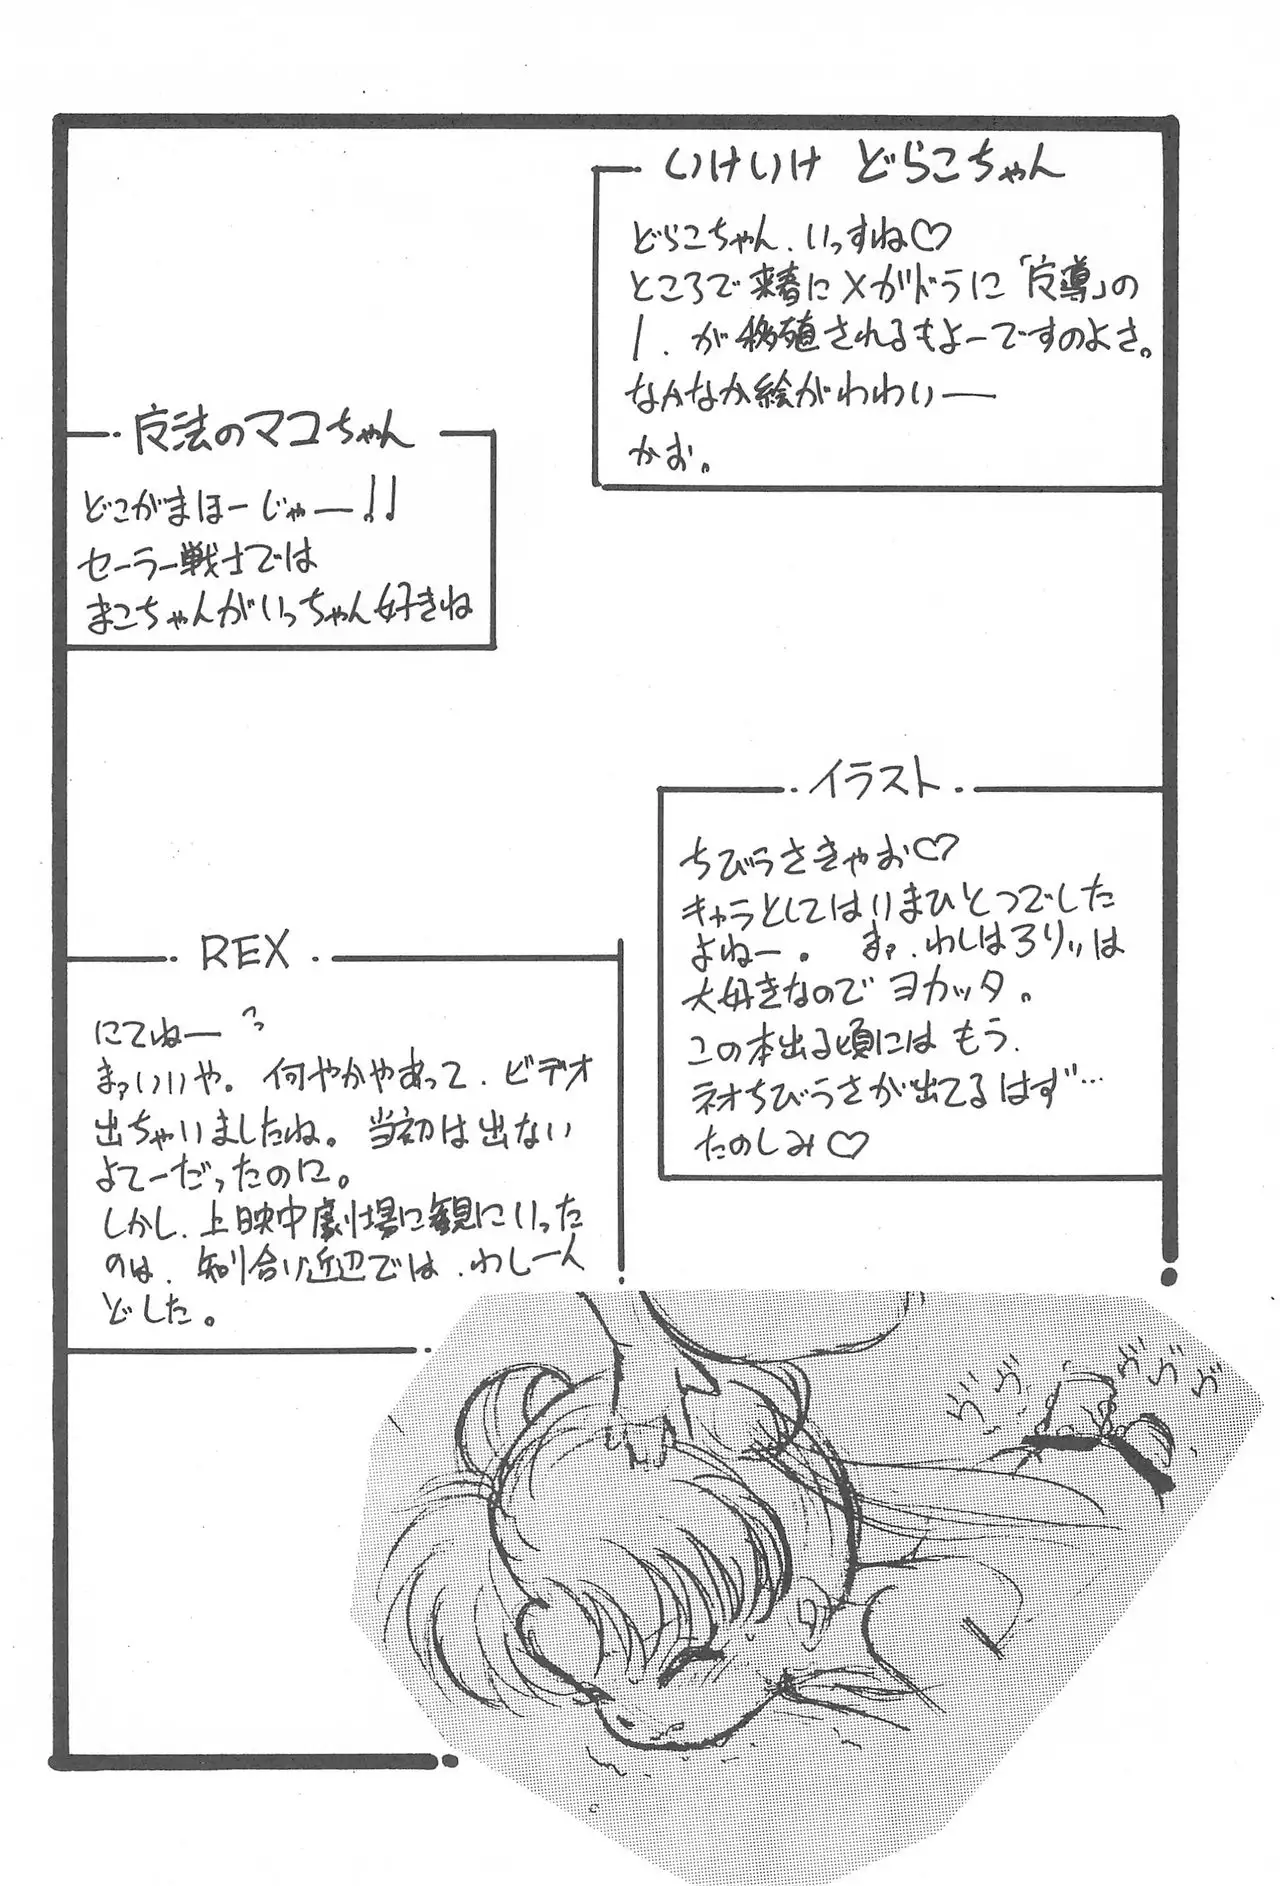 いけいけ どらこちゃん
どらこちゃん、いっすね♡
ところで来春にメガドラに「反導」の
1、が移殖されるもよーですのよさ。
なかなか絵がわわいー
かお。
反法のマコちゃん
どこがまほーじゃー!!
セーラー戦士では
まこちゃんがいっちゃん好きね
イラスト
ちびうさきゃお♡
キャラとしてはいまひとつでした
よねー。まァ、わしはろりッは
大好きなのでヨカッタ。
この本出る頃にはもう、
ネオちびうさが出てるはず…
たのしみ♡
REX
にてねーっ
まァいいや。何やかやあって、ビデオ
出ちゃいましたね。当初は出ない
よてーだったのに。
しかし、上映中劇場に観にいった
のは、知り合い近辺では、わし一人
どした。
ヴヴヴヴヴ